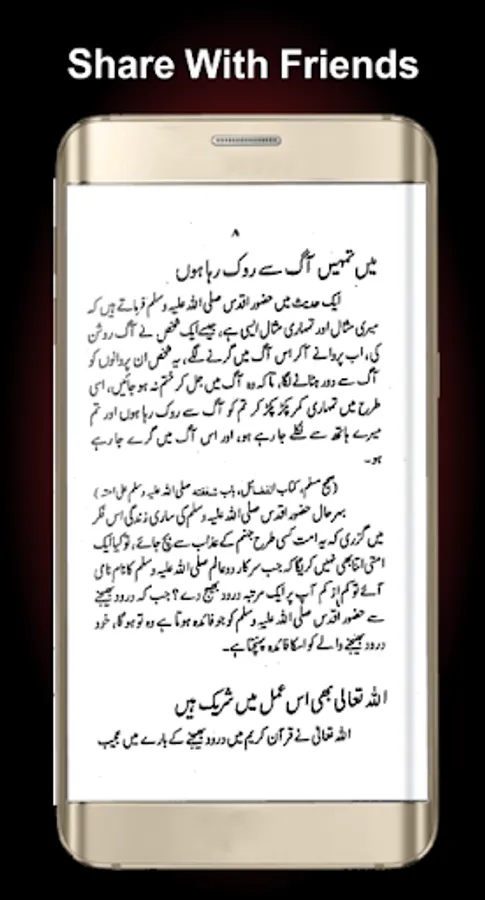 Share With Friends
۸
میں تمہیں آگ سے روک رہا ہوں
ایک حدیث میں حضور اقدس صلی اللہ علیہ وسلم فرماتے ہیں کہ
میری مثال اور تمہاری مثال ایسی ہے، جیسے ایک شخص نے آگ روشن
کی، اب پروانے آکر اس آگ میں گرنے لگے، یہ شخص ان پروانوں کو
آگ سے دور ہٹانے لگا، تاکہ وہ آگ میں جل کر ختم نہ ہو جائیں، اسی
طرح میں تمہاری کمر پکڑ پکڑ کر تم کو آگ سے روک رہا ہوں اور تم
میرے ہاتھ سے نکلے جا رہے ہو، اور اس آگ میں گرے جا رہے
ہو۔
(صحیح مسلم، کتاب الفضائل، باب شفقته صلی اللہ علیہ وسلم علی امته)
بہرحال حضور اقدس صلی اللہ علیہ وسلم کی ساری زندگی اس فکر
میں گزری کہ یہ امت کسی طرح جہنم کے عذاب سے بچ جائے، تو کیا ایک
امتی اتنا بھی نہیں کریگا کہ جب سرکار دو عالم صلی اللہ علیہ وسلم کا نام نامی
آئے تو کم از کم آپ پر ایک مرتبہ درود بھیج دے؟ جب کہ درود بھیجنے
سے حضور اقدس صلی اللہ علیہ وسلم کو جو فائدہ ہوتا ہے وہ تو ہو گا، خود
درود بھیجنے والے کو اسکا فائدہ پہنچتا ہے۔
اللہ تعالی بھی اس عمل میں شریک ہیں
اللہ تعالیٰ نے قرآن کریم میں درود بھیجنے کے بارے میں عجیب